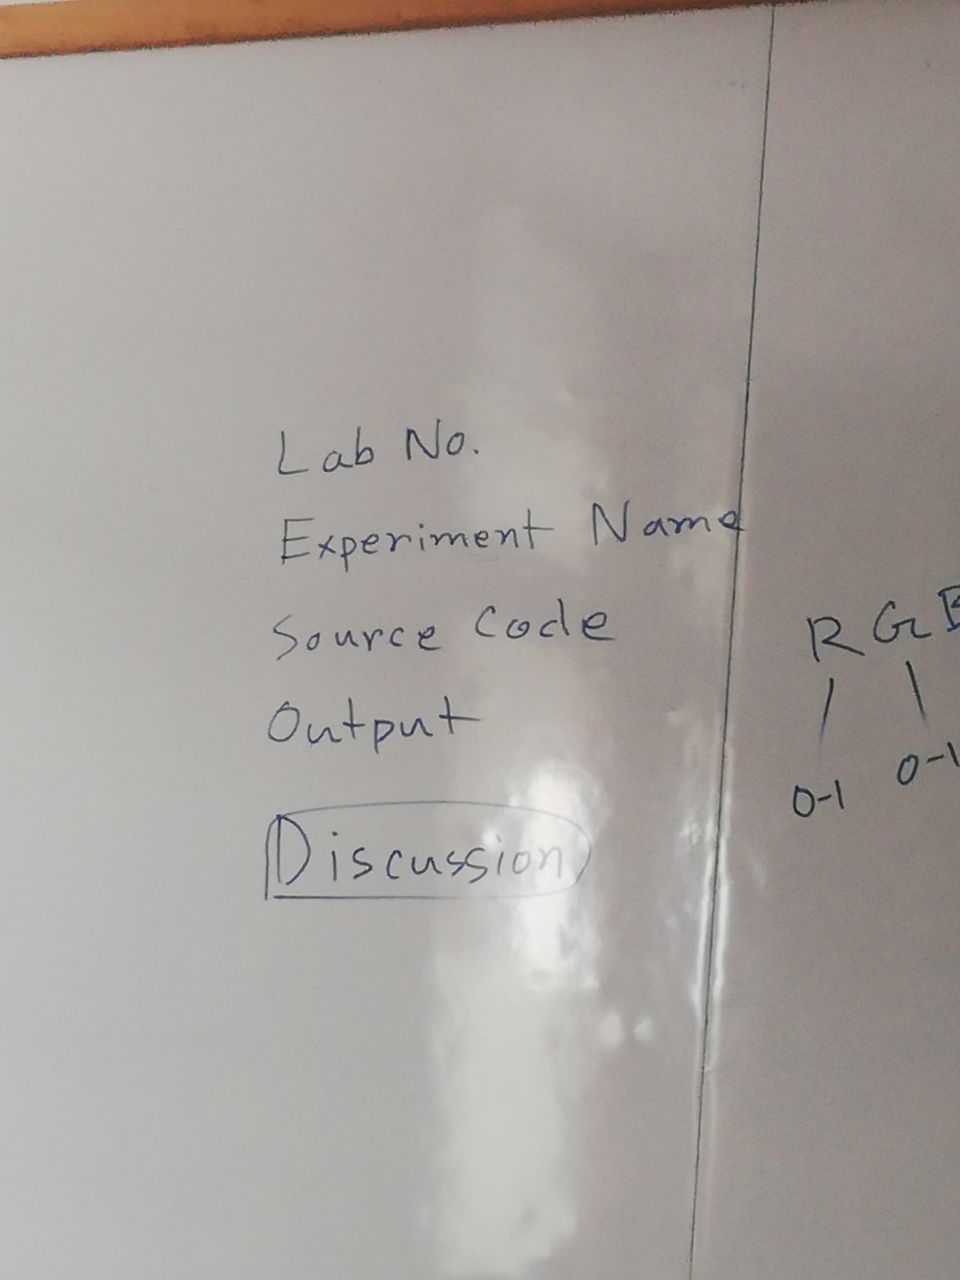 Lab No.
Experiment Name
Source Code
Output
Discussion
R G B
0-1 0-1